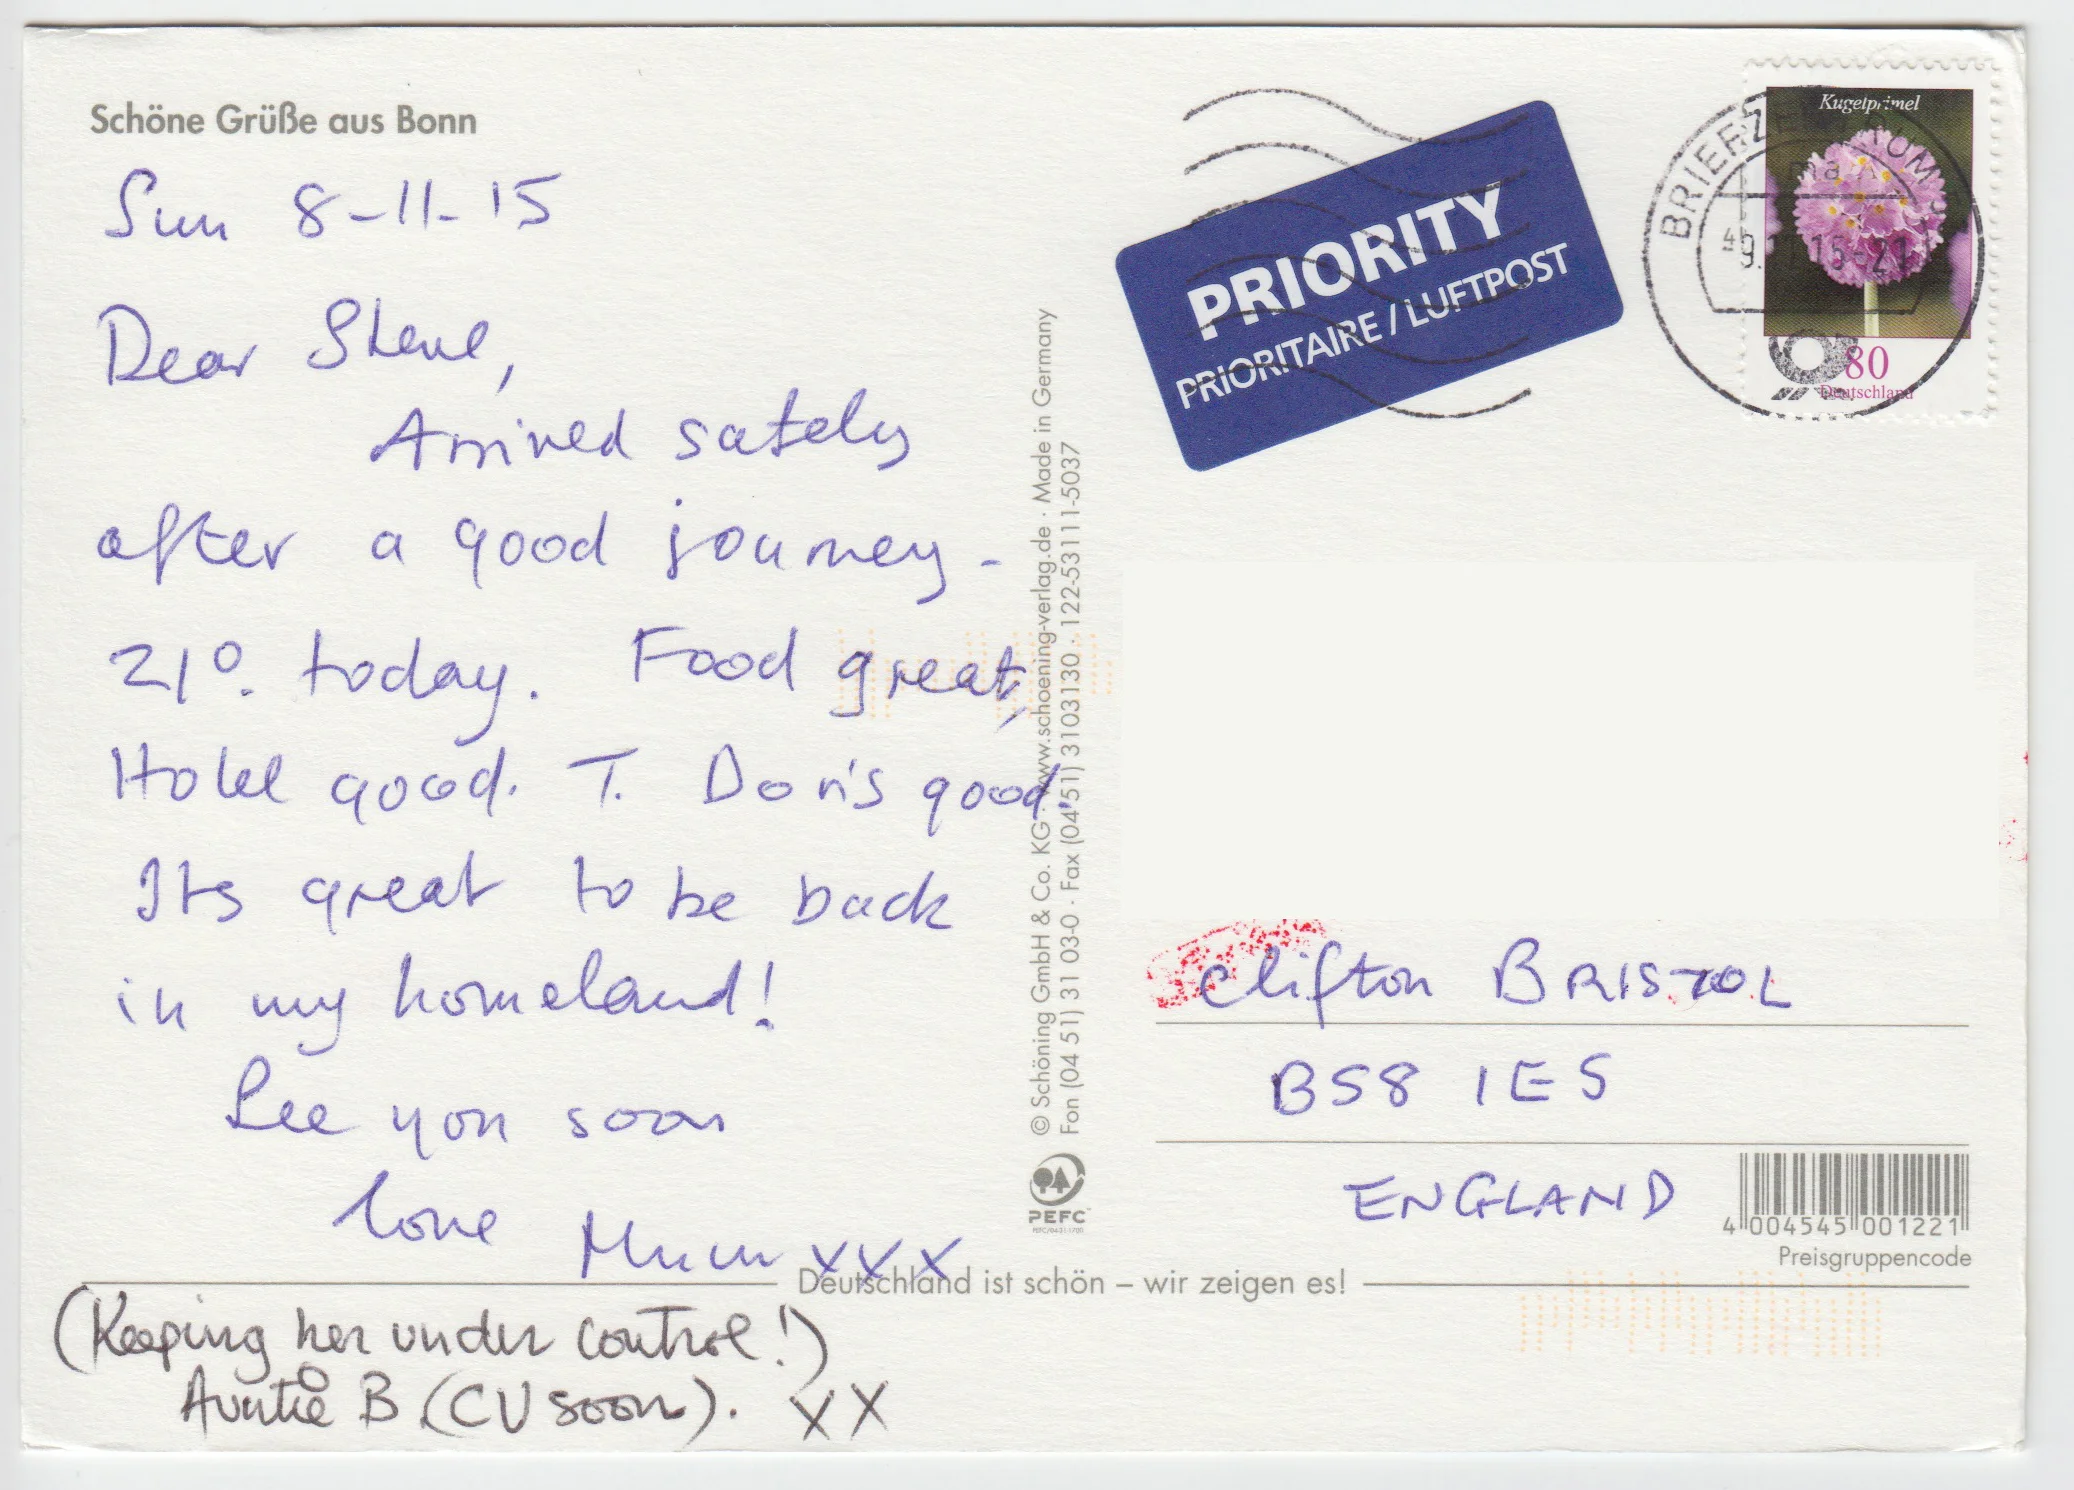 Schöne Grüße aus Bonn
Sun 8-11-15
Dear Steve,
Arrived safely
after a good journey-
21º. today. Food great,
Hotel good. T. Doris good.
Its great to be back
in my homeland!
See you soon
love Mum xxx
(Keeping her under control!)
Auntie B (CU soon). XX
© Schöning GmbH & Co. KG · www.schoening-verlag.de · Made in Germany
Fon (04 51) 31 03-0 · Fax (04 51) 3103130 · 122-53111-5037
PEFC
Deutschland ist schön – wir zeigen es!
PRIORITY
PRIORITAIRE / LUFTPOST
Kugelprimel
80
Deutschland
Clifton BRISTOL
BS8 1ES
ENGLAND
4 004545 001221
Preisgruppencode